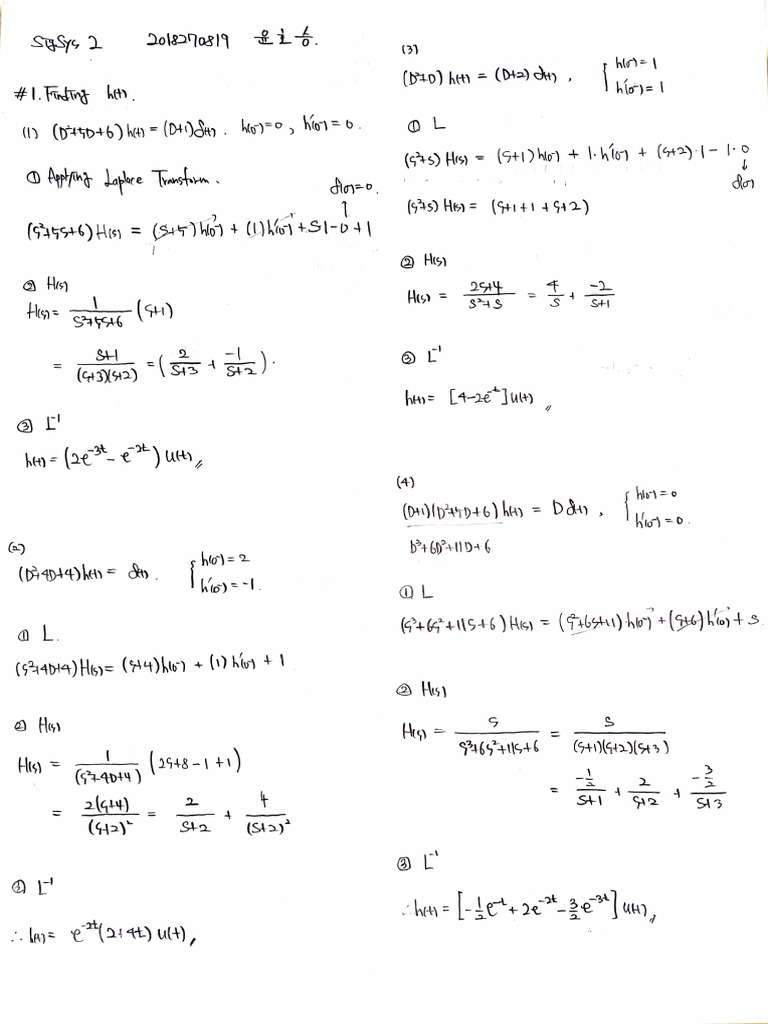 SigSys 2 2018270819 윤 으
#1. Finding h(t).
(1) (D²+5D+6) h(t) = (D+1) δ(t). h(0⁻)=0, h'(0⁻)=0.
① Applying Laplace Transform.
δ(0)=0.
↑
(s²+5s+6) H(s) = (s+5) h(0⁻) + (1) h'(0⁻) + s·1-0+1
② H(s)
H(s) = 1/(s²+5s+6) (s+1)
= (s+1)/((s+3)(s+2)) = (2/(s+3) + -1/(s+2)).
③ L⁻¹
h(t) = (2e^{-3t} - e^{-2t}) u(t) //
(2)
(D²+4D+4) h(t) = δ(t). { h(0⁻)=2
h'(0⁻)=-1.
① L.
(s²+4D+4) H(s) = (s+4) h(0⁻) + (1) h'(0⁻) + 1
② H(s)
H(s) = 1/(s²+4D+4) (2s+8-1+1)
= 2(s+4)/(s+2)² = 2/(s+2) + 4/(s+2)²
③ L⁻¹
∴ h(t) = e^{-2t}(2+4t) u(t) //
(3)
(D²+D) h(t) = (D+2) δ(t), { h(0⁻)=1
h'(0⁻)=1
① L
(s²+s) H(s) = (s+1) h(0⁻) + 1·h'(0⁻) + (s+2)·1 - 1·0
↓
δ(0)
(s²+s) H(s) = (s+1+1+s+2)
② H(s)
H(s) = (2s+4)/(s²+s) = 4/s + -2/(s+1)
③ L⁻¹
h(t) = [4-2e^{-t}] u(t) //
(4)
(D+1)(D²+5D+6) h(t) = D δ(t), { h(0⁻)=0
h'(0⁻)=0.
D³+6D²+11D+6
① L
(s³+6s²+11s+6) H(s) = (s²+6s+11) h(0⁻) + (s+6) h'(0⁻) + s
② H(s)
H(s) = s/(s³+6s²+11s+6) = s/((s+1)(s+2)(s+3))
= -½/(s+1) + 2/(s+2) + -3/2/(s+3)
③ L⁻¹
∴ h(t) = [-½e^{-t} + 2e^{-2t} - 3/2 e^{-3t}] u(t) //